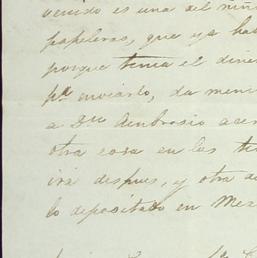 venido es una del niñ
papeleras, que ya has
porque tenia el dine
pª enviarlo, da men
a Dn Ambrosio acer
otra cosa en las te
irá despues, y otra de
lo depositado en Mex